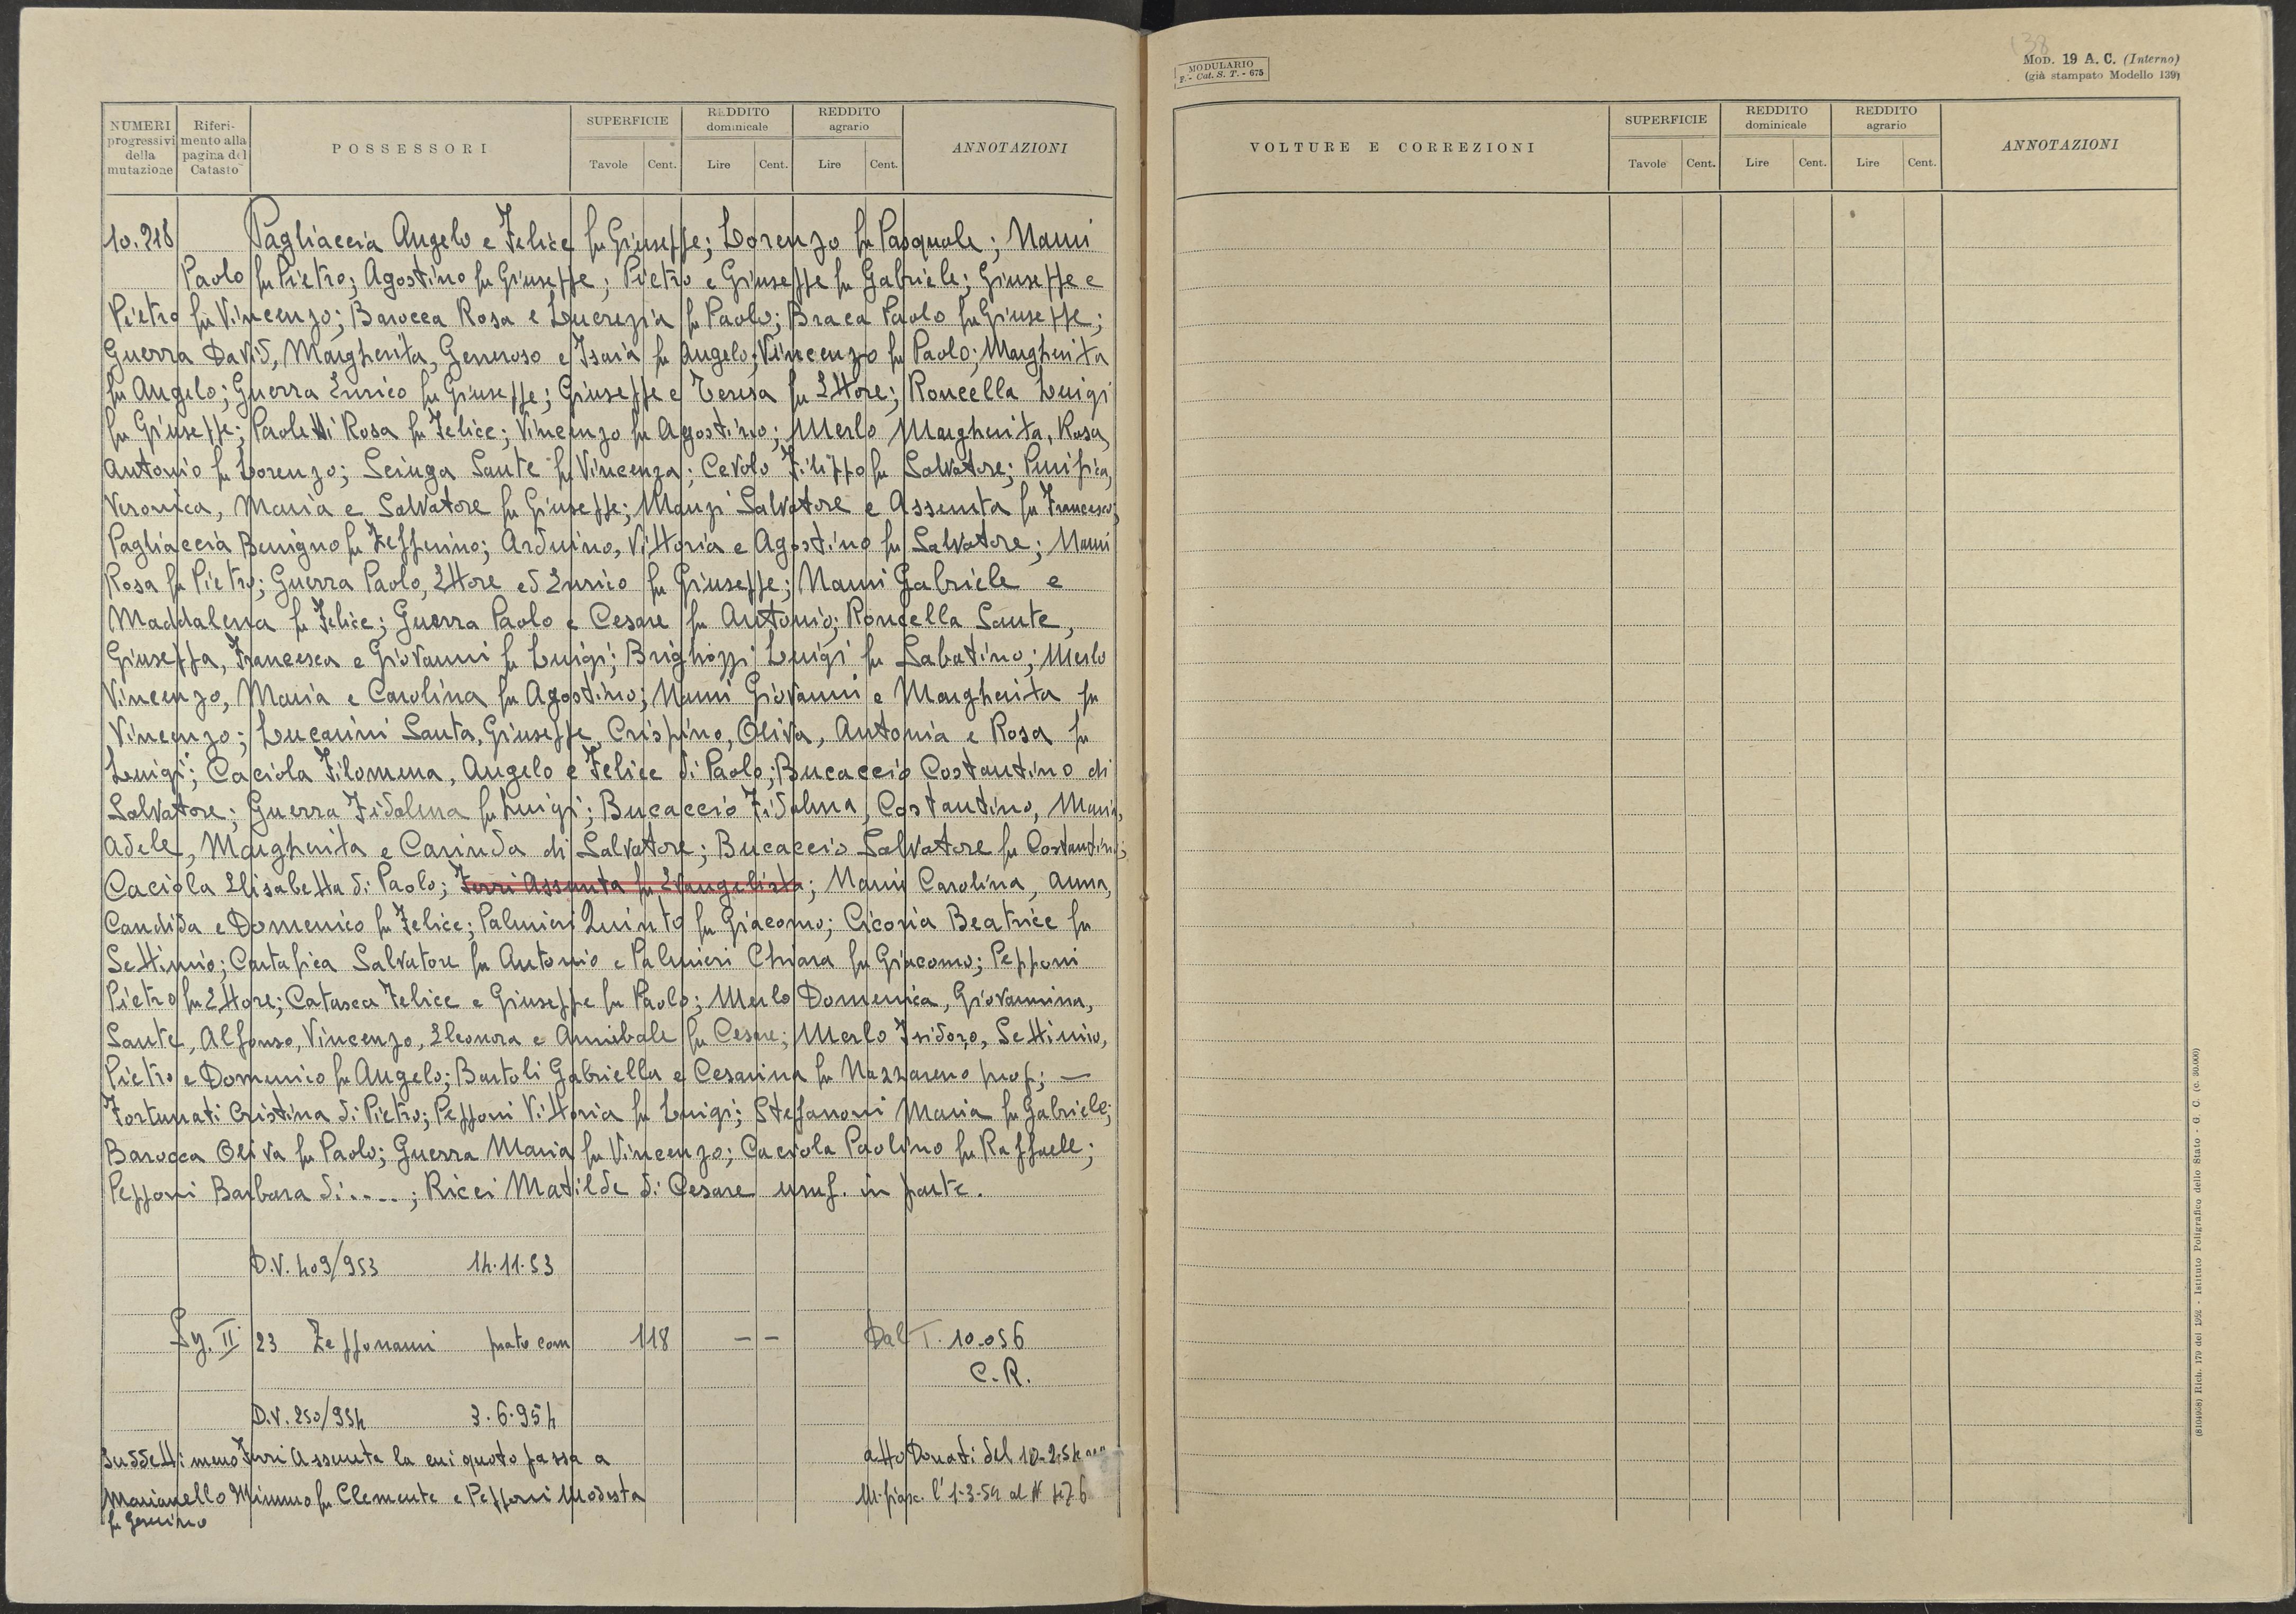 NUMERI progressivi della mutazione
Riferimento alla pagina del Catasto
POSSESSORI
SUPERFICIE
Tavole Cent.
REDDITO dominicale
Lire Cent.
REDDITO agrario
Lire Cent.
ANNOTAZIONI
10.218 Pagliaccia Angelo e Felice fu Giuseppe; Lorenzo fu Pasquale; Nanni
Paolo fu Pietro; Agostino fu Giuseppe; Pietro e Giuseppe fu Gabriele; Giuseppe e
Pietro fu Vincenzo; Barocca Rosa e Lucrezia fu Paolo; Braca Paolo fu Giuseppe;
Guerra David, Margherita, Generoso e Isaia fu Angelo; Vincenzo fu Paolo; Margherita
fu Angelo; Guerra Enrico fu Giuseppe; Giuseppe e Teresa fu Ettore; Roncella Luigi
fu Giuseppe; Paoletti Rosa fu Felice; Vincenzo fu Agostino; Merlo Margherita, Rosa,
Antonio fu Lorenzo; Sciuga Sante fu Vincenza; Cevolo Filippo fu Salvatore; Purifica,
Veronica, Maria e Salvatore fu Giuseppe; Manzi Salvatore e Assunta fu Francesco;
Pagliaccia Benigno fu Zefferino; Arduino, Vittoria e Agostino fu Salvatore; Nanni
Rosa fu Pietro; Guerra Paolo, Ettore ed Enrico fu Giuseppe; Nanni Gabriele e
Maddalena fu Felice; Guerra Paolo e Cesare fu Antonio; Roncella Sante,
Giuseppa, Francesca e Giovanni fu Luigi; Brighozzi Luigi fu Sabatino; Merlo
Vincenzo, Maria e Carolina fu Agostino; Nanni Giovanni e Margherita fu
Vincenzo; Lucarini Santa, Giuseppe, Crispino, Oliva, Antonia e Rosa fu
Luigi; Caciola Filomena, Angelo e Felice di Paolo; Bucaccio Costantino di
Salvatore; Guerra Fidalma fu Luigi; Bucaccio Fidalma, Costantino, Maria,
Adele, Margherita e Carinda di Salvatore; Bucaccio Salvatore fu Costantino;
Caciola Elisabetta di Paolo; Ferri Assunta fu Evangelista; Nanni Carolina, Anna,
Candida e Domenico fu Felice; Palmieri Quinto fu Giacomo; Ciconia Beatrice fu
Settimio; Cartafica Salvatore fu Antonio e Palmieri Chiara fu Giacomo; Pepponi
Pietro fu Ettore; Catasca Felice e Giuseppe fu Paolo; Merlo Domenica, Giovannina,
Sante, Alfonso, Vincenzo, Eleonora e Annibale fu Cesare; Merlo Isidoro, Settimio,
Pietro e Domenico fu Angelo; Bartoli Gabriella e Cesarina fu Nazzareno prop; —
Fortunati Cristina di Pietro; Pepponi Vittoria fu Luigi; Stefanoni Maria fu Gabriele;
Barocca Oliva fu Paolo; Guerra Maria fu Vincenzo; Caciola Paolino fu Raffaele;
Pepponi Barbara di....; Ricci Matilde di Cesare usuf. in parte.
D.V. 409/953 14.11.53
Sy. II 23 Zepponanni prato com 118 -- Dal T. 10.056
C.R.
D.V. 250/954 3.6.954
Suddetti meno Ferri Assunta la cui quota passa a atto Donati del 10-2-54
Marianello Mimmo fu Clemente e Pepponi Modesta l'1-3-54 al N 476
fu
MODULARIO
F. - Cat. S. T. - 675
138
MOD. 19 A. C. (Interno)
(già stampato Modello 139)
VOLTURE E CORREZIONI
SUPERFICIE
Tavole Cent.
REDDITO dominicale
Lire Cent.
REDDITO agrario
Lire Cent.
ANNOTAZIONI
(8104908) Rich. 179 del 1952 - Istituto Poligrafico dello Stato - G. C. (c. 30.000)